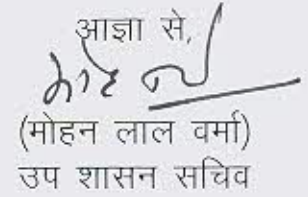 आज्ञा से,
(मोहन लाल वर्मा)
उप शासन सचिव